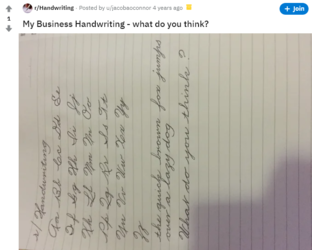 r/Handwriting · Posted by u/jacobaoconnor 4 years ago
Join
1
My Business Handwriting - what do you think?
r/Handwriting
Aa Bb Cc Dd Ee
Ff Gg Hh Ii Jj
Kk Ll Mm Nn Oo
Pp Qq Rr Ss Tt
Uu Vv Ww Xx Yy
Zz
the quick brown fox jumps
over a lazy dog
What do you think?